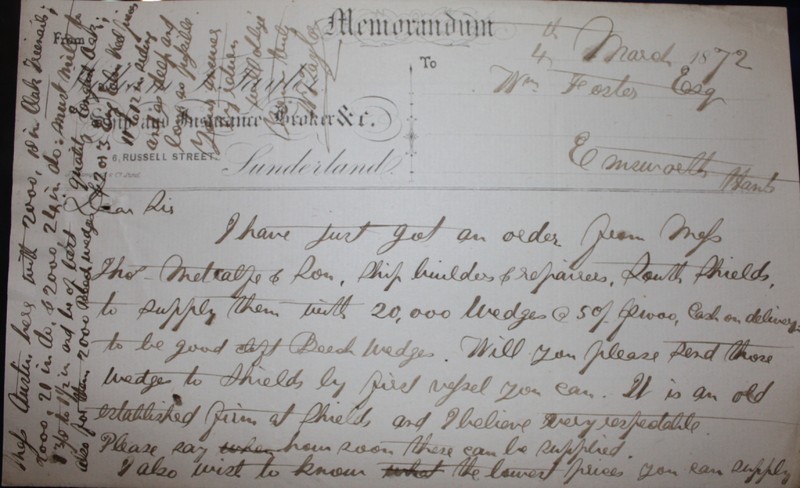 Memorandum
From
To
4th March 1872
Wm Foster Esq
Ship and Insurance Broker &c.
6, RUSSELL STREET,
Sunderland
Emsworth
Hants
Dear Sir
I have just got an order from Mess
Thos Metcalfe & Son, Ship builders & repairers, South Shields,
to supply them with 20,000 Wedges @ 50/. 1000, Cash on delivery
to be good Beech Wedges. Will you please send those
Wedges to Shields by first vessel you can. It is an old
established firm at Shields and I believe very respectable.
Please say when how soon these can be supplied.
I also wish to know what the lowest prices you can supply
Mess Austin here with 2000, in Oak Treenails;
2000, 21 in do, & 2000, 24 in do: must mill to
1 3/8 to 1 1/2 in and be of best quality English Oak;
also for them 2000 Beech wedges
long as possible.
Your answer
by return
will oblige
Yours truly
Taylor